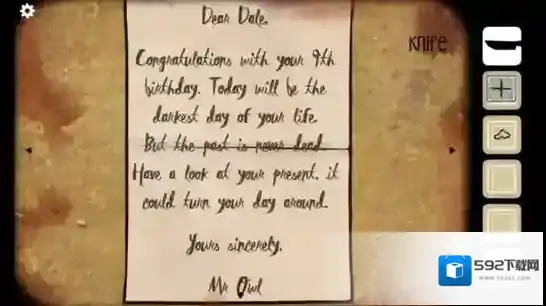 Dear Dale,
Congratulations with your 9th
birthday. Today will be the
darkest day of your life.
But the past is never dead.
Have a look at your present, it
could turn your day around.
Yours sincerely,
Mr Owl
Knife
592下载网